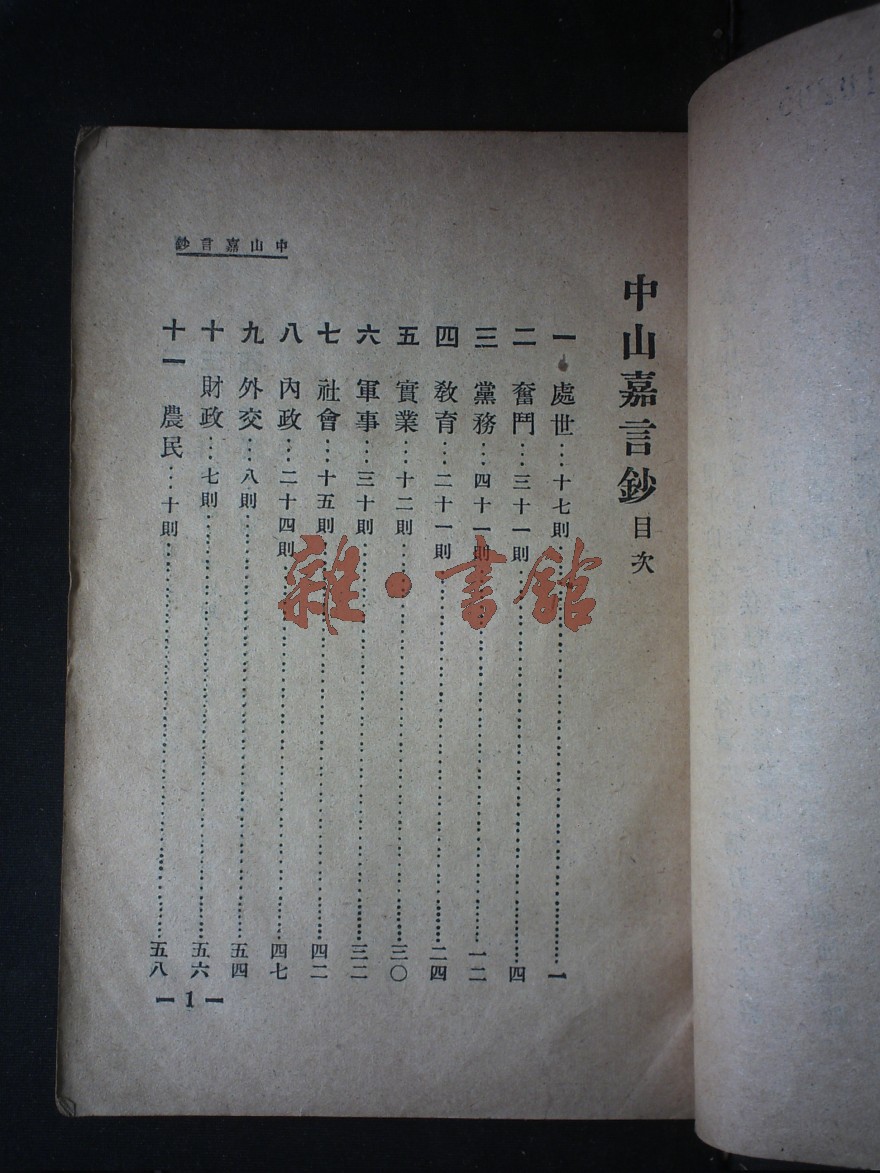 中山嘉言鈔 目次
一 處世…十七則……一
二 奮鬥…三十一則……四
三 黨務…四十一則……一二
四 敎育…二十一則……二四
五 實業…十二則……三〇
六 軍事…三十則……三二
七 社會…十五則……四二
八 內政…二十四則……四七
九 外交…八則……五四
十 財政…七則……五六
十一 農民…十則……五八
中山嘉言鈔
— 1 —
雜·書館